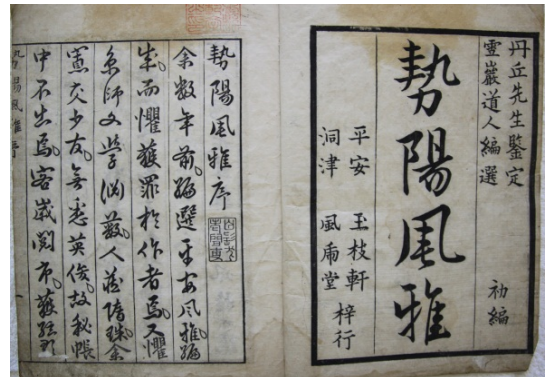 丹丘先生鑒定
靈巖道人編選
初編
勢陽風雅
平安 玉枝軒
洞津 風雨堂 梓行
勢陽風雅序
余數年前編選平安風雅編
成而懼獲罪於作者焉又懼
京師文學淵藪人 隋珠余
寡交少友無悉英俊故秘帳
中不出焉客歲閲市
勢陽風雅序